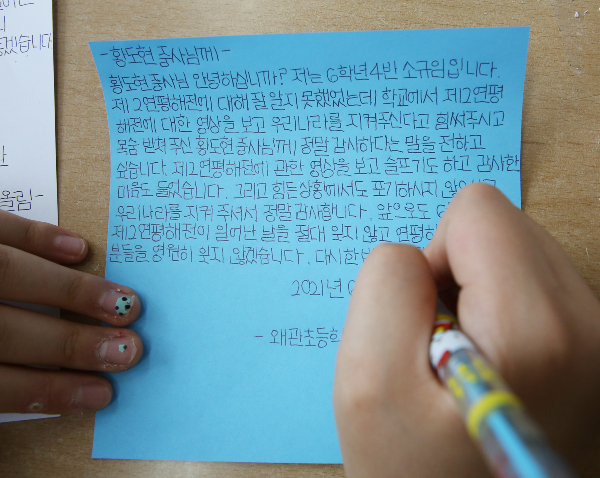 겠습니다
올림-
- 황도현 중사님께 -
황도현 중사님 안녕하십니까? 저는 6학년 4반 소규임입니다.
제 2연평해전에 대해 잘 알지 못했었는데 학교에서 제2연평
해전에 대한 영상을 보고 우리나라를 지켜주신다고 힘써주시고
목숨 받쳐주신 황도현 중사님께 정말 감사하다는 말을 전하고
싶습니다. 제2연평해전에 관한 영상을 보고 슬프기도 하고 감사한
마음도 들었습니다. 그리고 힘든상황에서도 포기하시지
우리나라를 지켜 주셔서 정말 감사합니다. 앞으로도
제2연평해전이 일어난 날을 절대 잊지 않고
분들을 영원히 잊지 않겠습니다. 다시한번
2021년
- 왜관초등학